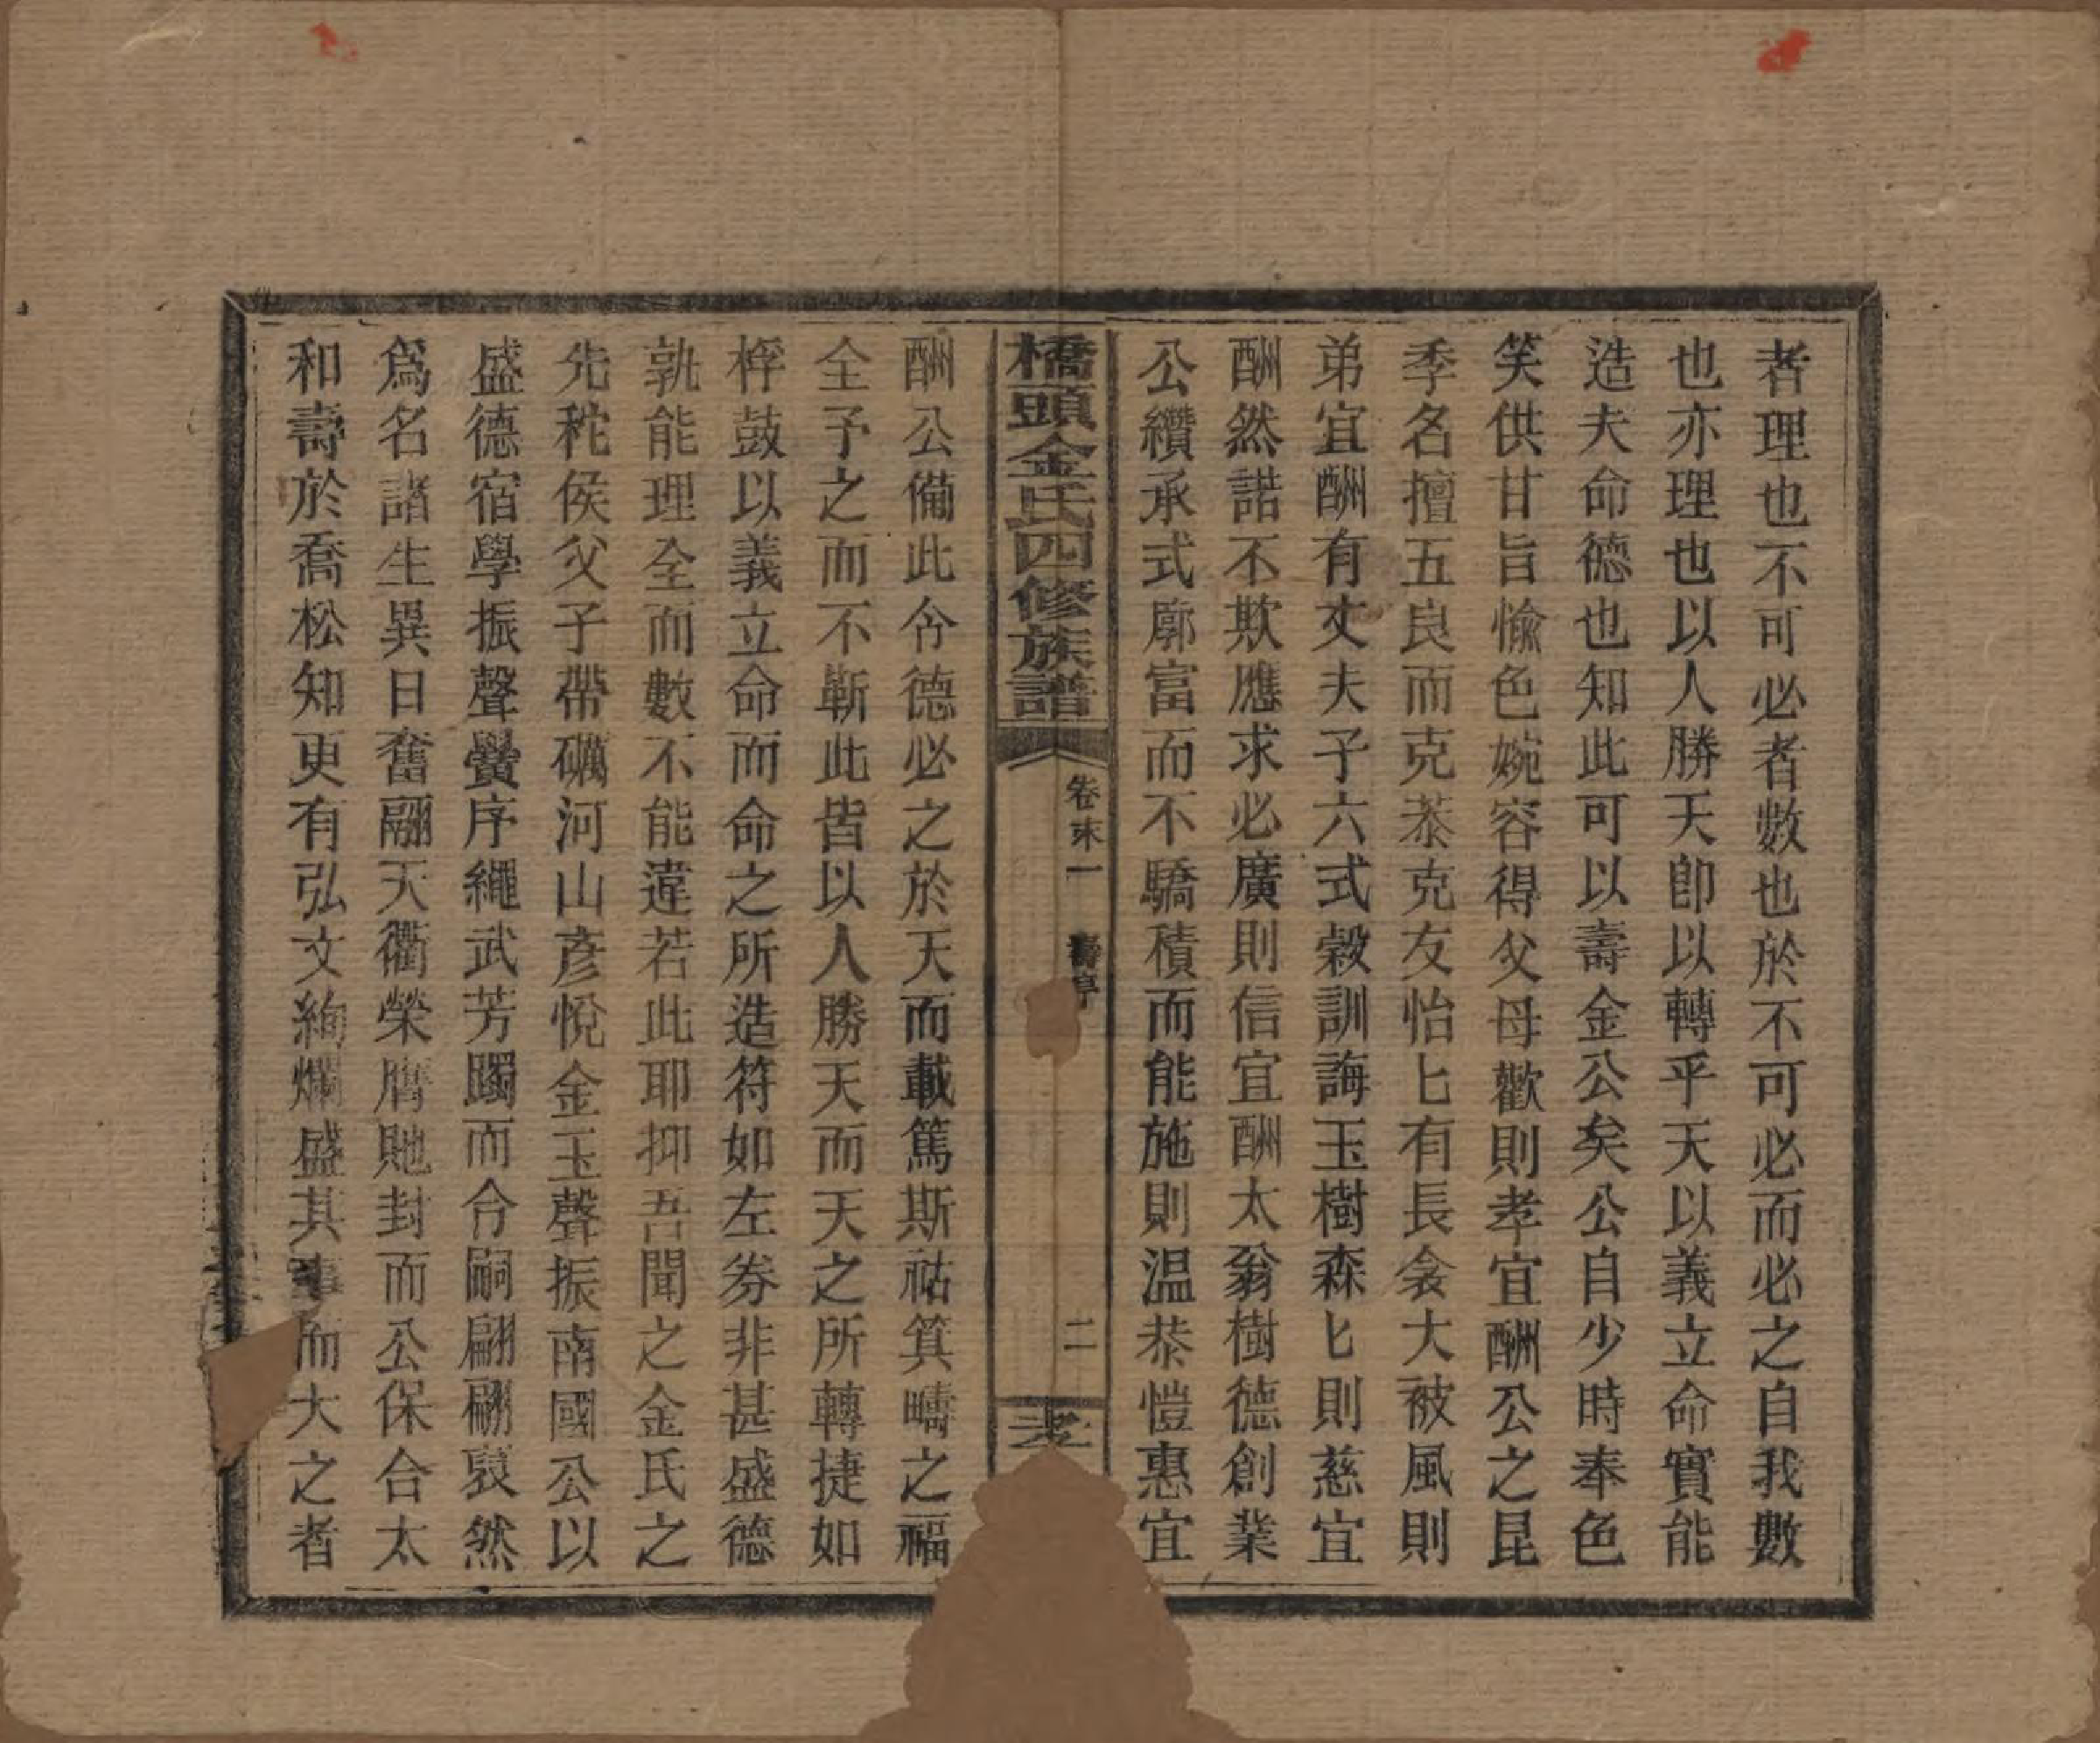 者理也不可必者數也於不可必而必之自我數
也亦理也以人勝天卽以轉乎天以義立命實能
造夫命德也知此可以壽金公矣公自少時奉色
笑供甘旨愉色婉容得父母歡則孝宜酬公之昆
季名擅五良而克恭克友怡匕有長衾大被風則
弟宜酬有丈夫子六式穀訓誨玉樹森匕則慈宜
酬然諾不欺應求必廣則信宜酬太翁樹德創業
公纘承式廓富而不驕積而能施則温恭愷惠宜
橋頭金氏四修族譜
卷末一 壽序
二
孝
酬公備此令德必之於天而載篤斯祜箕疇之福
全予之而不靳此皆以人勝天而天之所轉捷如
桴鼓以義立命而命之所造符如左券非甚盛德
孰能理全而數不能違若此耶抑吾聞之金氏之
先秺侯父子帶礪河山彥悅金玉聲振南國公以
盛德宿學振聲黌序繩武芳躅而合嗣翩翩裒然
爲名諸生異日奮翮天衢榮膺貤封而公保合太
和壽於喬松知更有弘文絢爛盛其事而大之者